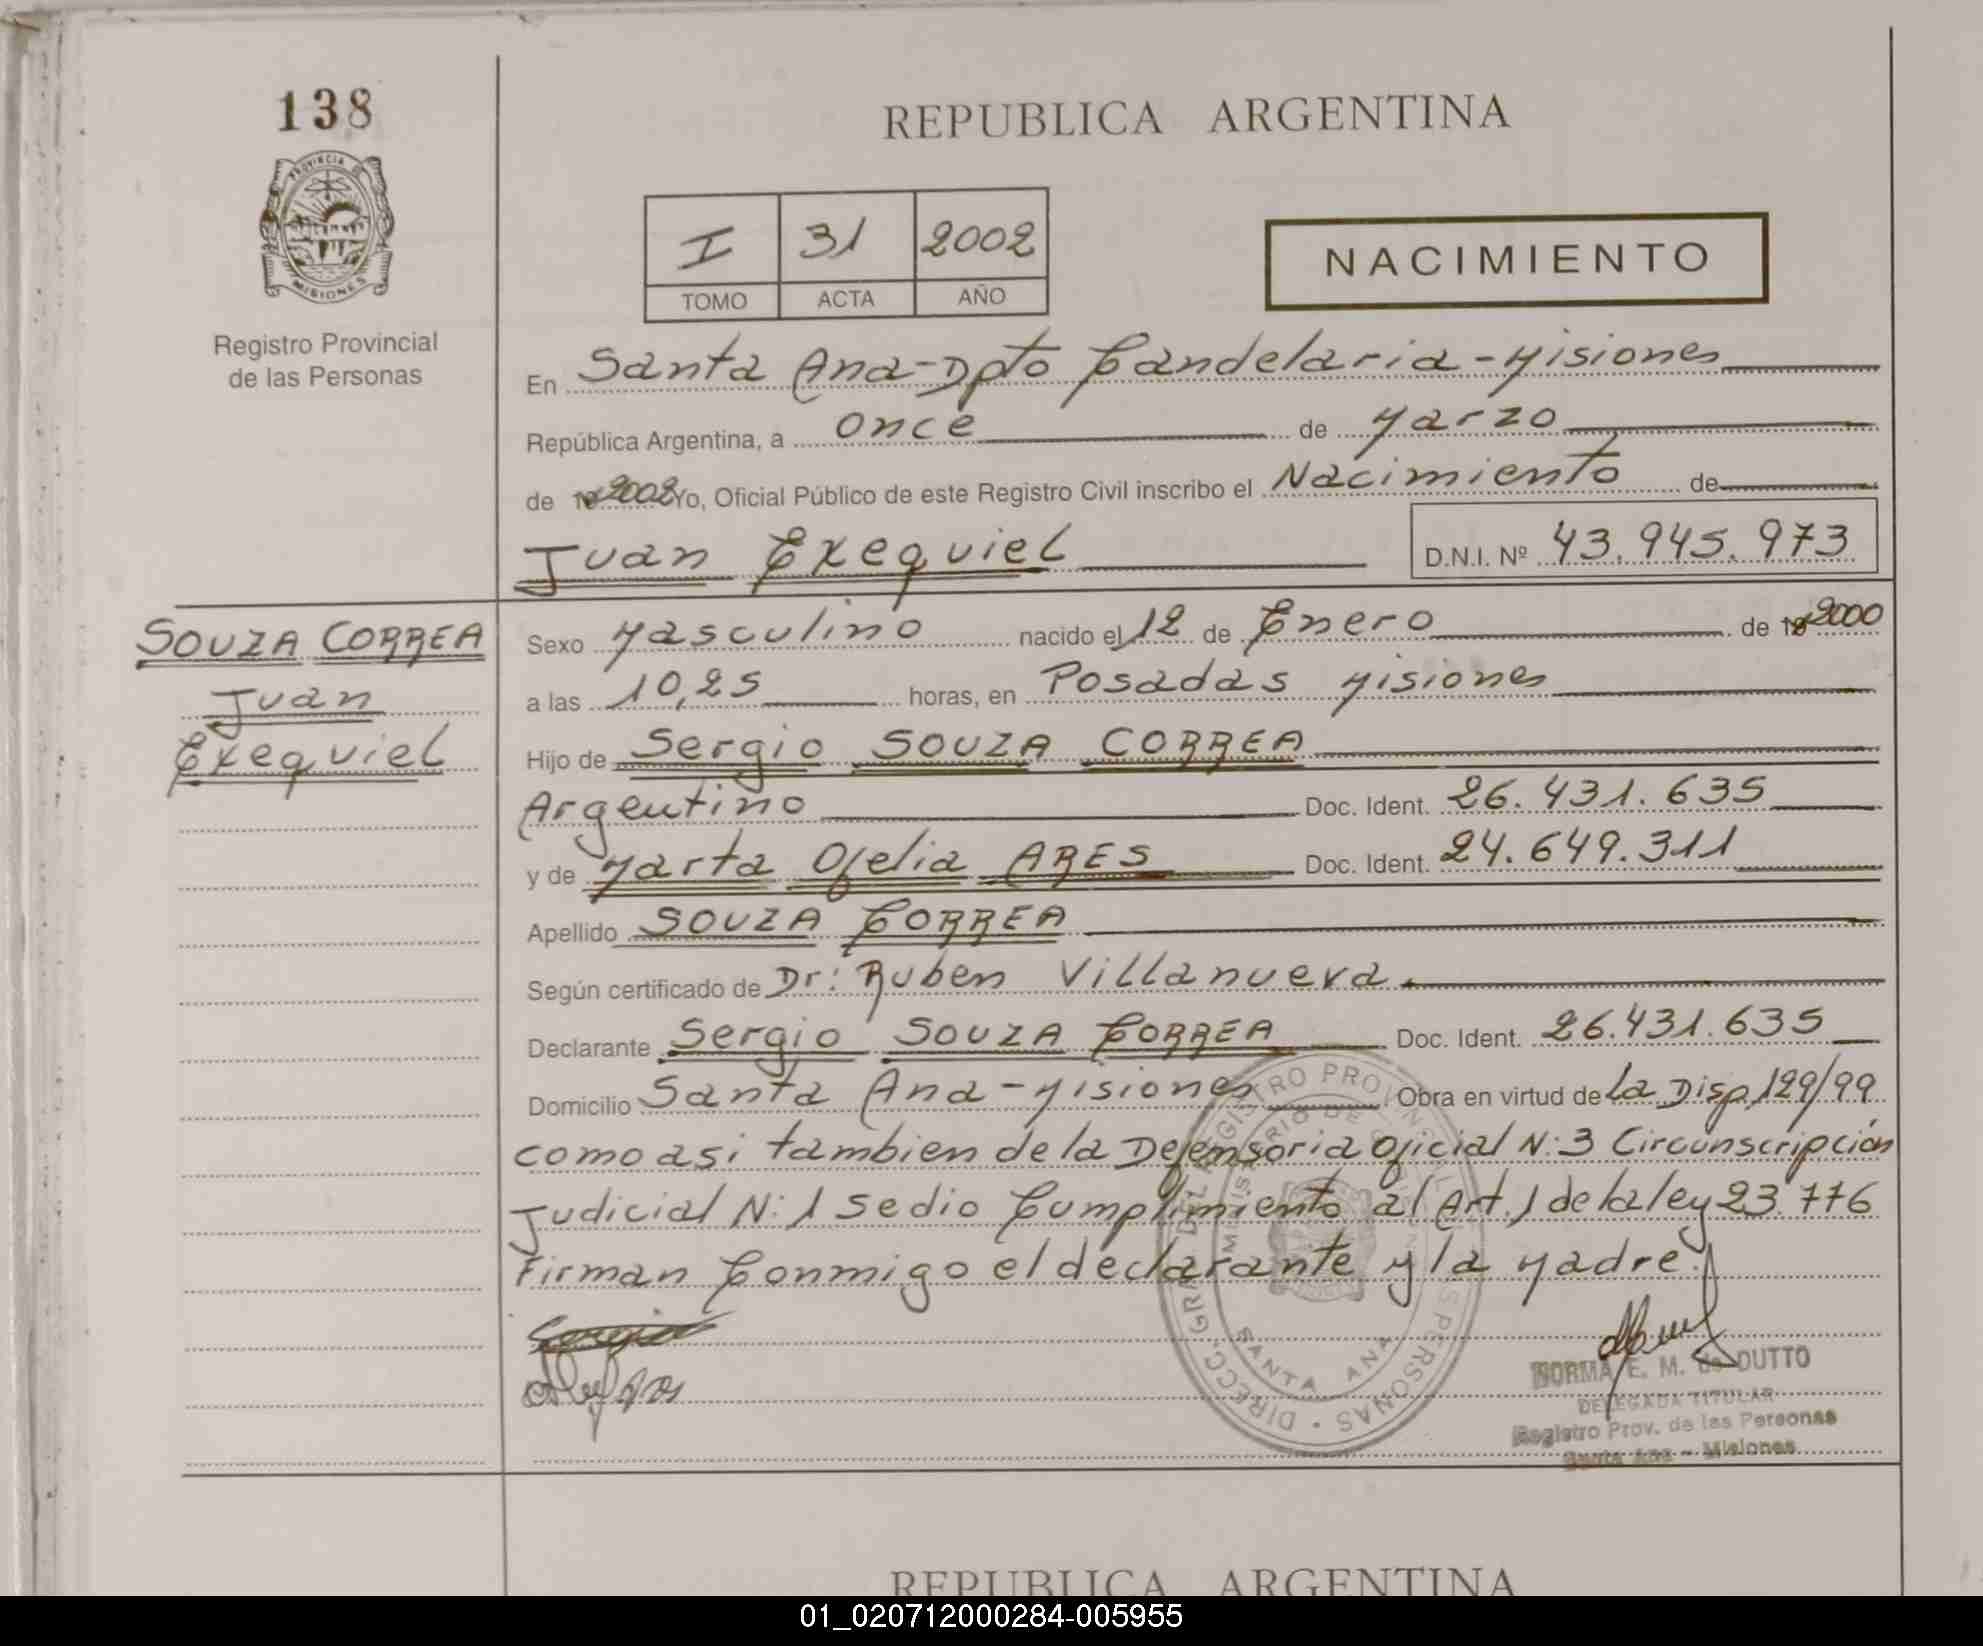 138
PROVINCIA DE
MISIONES
Registro Provincial
de las Personas
REPUBLICA ARGENTINA
I 31 2002
TOMO ACTA AÑO
NACIMIENTO
En Santa Ana-Dpto Candelaria-Misiones
República Argentina, a once de Marzo
de 19 2002 Yo, Oficial Público de este Registro Civil inscribo el Nacimiento de
Juan Exequiel D.N.I. Nº 43.945.973
SOUZA CORREA
Juan
Exequiel
Sexo Masculino nacido el 12 de Enero de 19 2000
a las 10,25 horas, en Posadas Misiones
Hijo de Sergio SOUZA CORREA
Argentino Doc. Ident. 26.431.635
y de Marta Ofelia ARES Doc. Ident. 24.649.311
Apellido SOUZA CORREA
Según certificado de Dr: Ruben Villanueva.
Declarante Sergio SOUZA CORREA Doc. Ident. 26.431.635
Domicilio Santa Ana-Misiones Obra en virtud de La Disp. 129/99
como asi tambien de la Defensoria Oficial N: 3 Circunscripción
Judicial N: 1 se dio Cumplimiento al Art. 1 de la ley 23.776
Firman Conmigo el declarante y la Madre.
Sergio
DIRECC. GRAL. DEL REGISTRO PROVINCIAL DE LAS PERSONAS
MINISTERIO DE GOBIERNO
SANTA ANA
NORMA E. M. de DUTTO
DELEGADA TITULAR
Registro Prov. de las Personas
Santa Ana - Misiones
REPUBLICA ARGENTINA
01_020712000284-005955